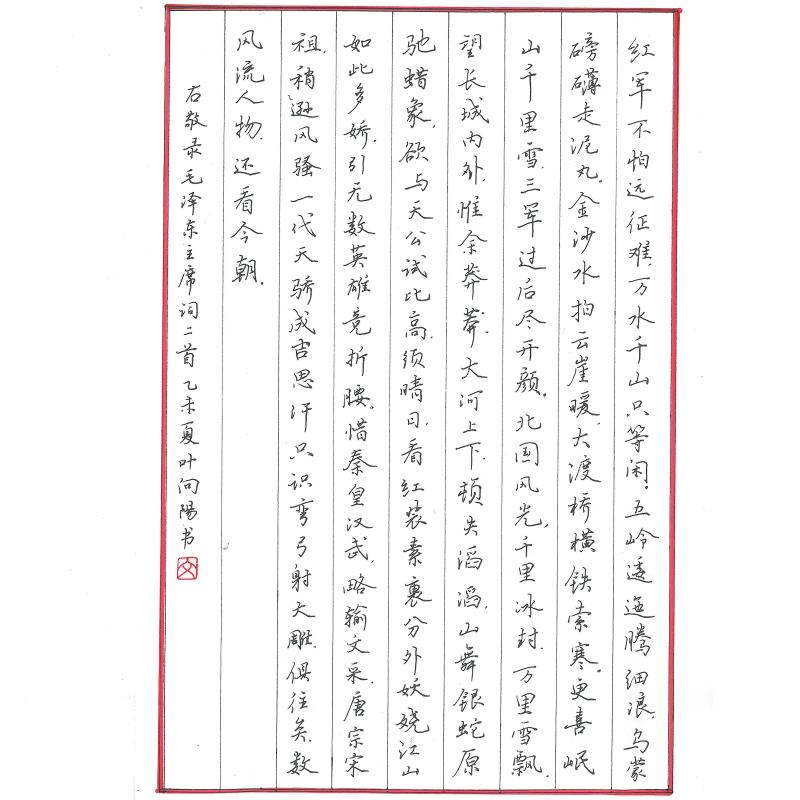 红军不怕远征难，万水千山只等闲。五岭逶迤腾细浪，乌蒙
磅礴走泥丸。金沙水拍云崖暖，大渡桥横铁索寒。更喜岷
山千里雪，三军过后尽开颜。北国风光，千里冰封，万里雪飘，
望长城内外，惟余莽莽，大河上下，顿失滔滔，山舞银蛇原
驰蜡象，欲与天公试比高，须晴日，看红装素裹分外妖娆江山
如此多娇，引无数英雄竞折腰。惜秦皇汉武，略输文采，唐宗宋
祖，稍逊风骚一代天骄成吉思汗只识弯弓射大雕，俱往矣，数
风流人物，还看今朝。
右敬录毛泽东主席词二首乙未夏叶向陽书
文